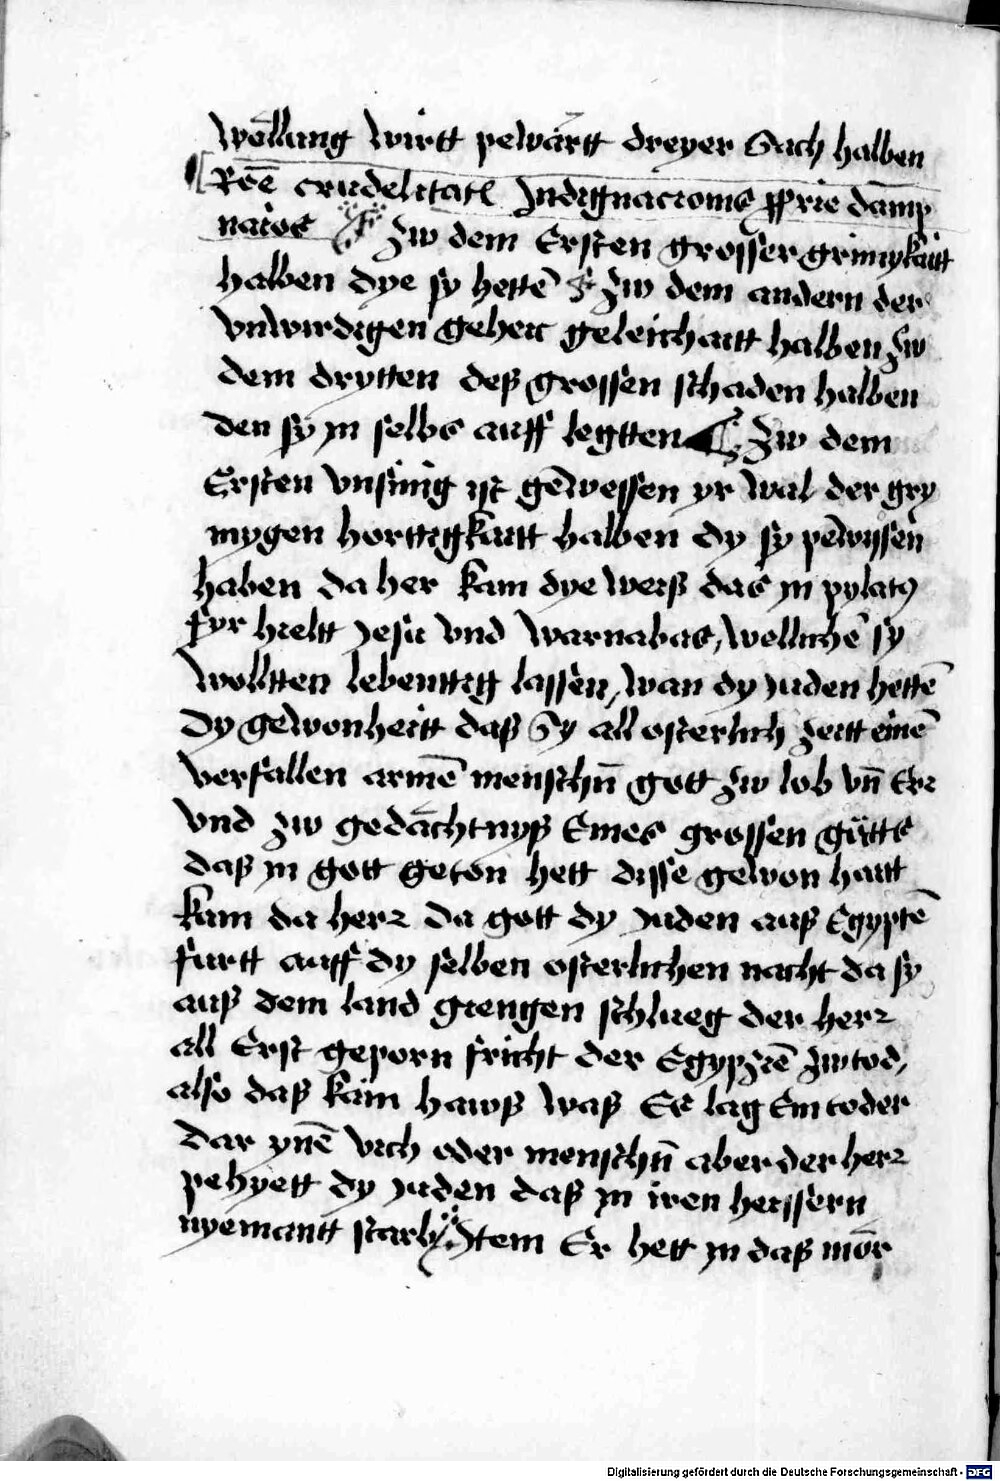 wellung wirtt pewärtt dreyer sach halben
Roē crudelitatꝭ Indignacionis ꝓprie damp
nacōis Zw dem Ersten grosser grimykaitt
halben dye sy hettē Zw dem andern der
vnwirdigen geheit geleichaitt halben Zw
dem drytten deß grossen schaden halben
den sy yn selbs auff legtten Zw dem
Ersten vnsinig yst gewessen yr wal der gry
mygen horttigkaitt halben dy sy pewysen
haben da her kam dye weiß das yn pylatꝰ
fyr hieltt Jesu vnd warnabas, wellichē sy
wolltten lebenttig lassen, wan dy Juden hettē
dy gewonheitt daß sy all osterlich zeitt einē
verfallen armē menschn̄ gott zw lob vn̄ Er
vnd zw gedächtnyß Eines grossen gütts
daß yn gott geton hett disse gewon haitt
kam da herr da gott dy Juden auß Egyptē
furtt auff dy selben osterlichen nacht da sy
auß dem land giengen schlueg der herr
all Erst geporn fricht der Egypziē zw tod,
also daß kain hawß waß Es lag Ein toder
dar ynē vich oder menschn̄ aber der herr
pehyett dy Juden daß yn iren heissern
nyemantt starb Item Er hett yn daß mör
Digitalisierung gefördert durch die Deutsche Forschungsgemeinschaft - DFG